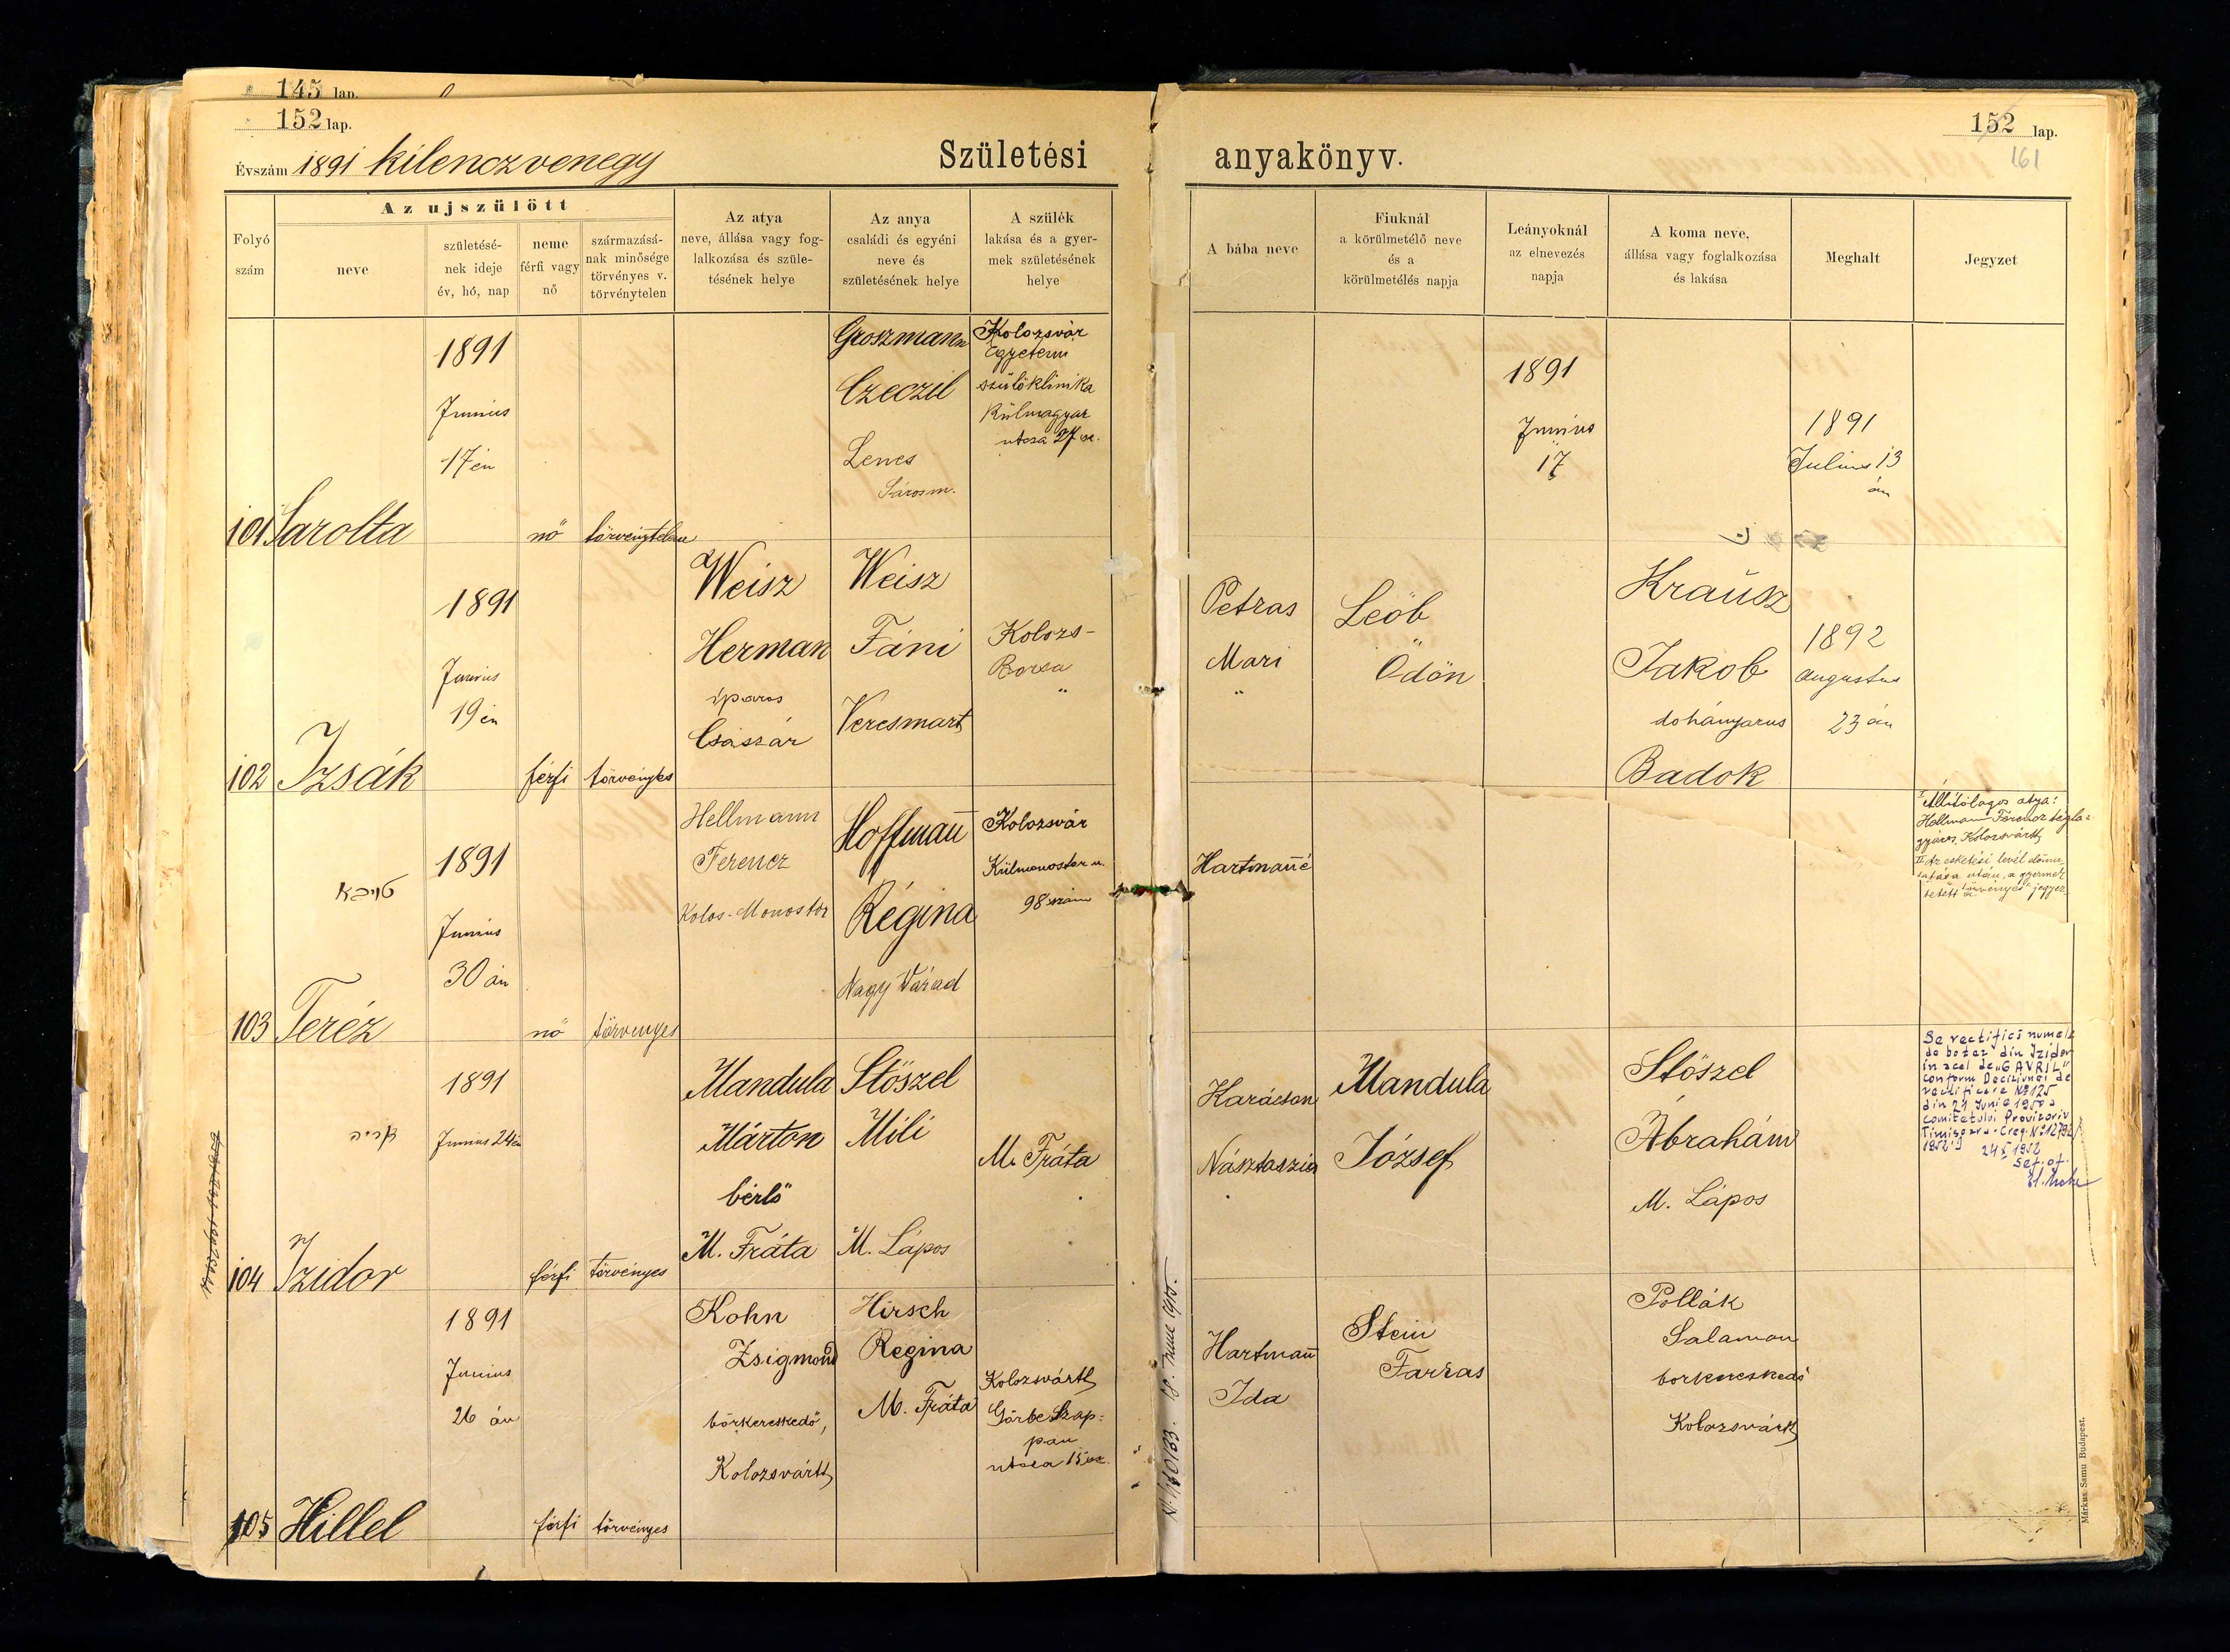 145 lap.
152 lap.
Évszám 1891 kilenczvenegy
Születési
Folyó szám
Az ujszülött
neve
születésé-
nek ideje
év, hó, nap
neme
férfi vagy
nő
származásá-
nak minősége
törvényes v.
törvénytelen
Az atya
neve, állása vagy fog-
lalkozása és szüle-
tésének helye
Az anya
családi és egyéni
neve és
születésének helye
A szülék
lakása és a gyer-
mek születésének
helye
101
Sarolta
1891
Junius
17én
nő
törvénytelen
Groszmann
Czeczil
Lenes
Sárosm.
Kolozsvár
Egyetemi
szülőklinika
Külmagyar
utcza 27
102
Izsák
1891
Junius
19én
férfi
törvényes
Weisz
Herman
iparos
Császár
Weisz
Fáni
Veresmart
Kolozs-
Borsa
"
103
Teréz
טויבא
1891
Junius
30án
nő
törvenyes
Hellmann
Ferencz
Kolos-Monostor
Hoffman̄
Régina
Nagy Várad
Kolozsvár
Külmonostor u.
98 szám
104
Izidor
1891
Junius 24én
férfi
törvényes
Mandula
Márton
bérlő
M. Fráta
Stöszel
Mili
M. Lápos
M. Fráta
105
Hillel
1891
Junius
26 án
férfi
törvényes
Kohn
Zsigmond
bőrkereskedő,
Kolozsvártt
Hirsch
Regina
M. Fráta
Kolozsvártt
Görbe Szap:
pan
utcza 15 sz.
anyakönyv.
152 lap.
161
A bába neve
Fiuknál
a körülmetélő neve
és a
körülmetélés napja
Leányoknál
az elnevezés
napja
A koma neve,
állása vagy foglalkozása
és lakása
Meghalt
Jegyzet
1891
Junius
17
1891
Julius 13
án
Petras
Mari
"
Leób
Ödön
Krausz
Jakob
dohányarus
Badok
1892
augustus
23 án
Hartman̄é
I Állitólagos atya:
Hellmann Ferencz tégla=
gyáros, Kolozsvártt
II Az esketési levél elömu-
tatása után, a gyermek
törvényes jegyez-
tetett
Karácson
Násztaszia
Mandula
József
Stöszel
Ábrahám
M. Lápos
Se rectifică numele
de botez din Izidor
in acel de „GAVRIL"
conform Deciziunei de
rectificare No 125
din 24 Iunie 1950 a
Comitetului Provizoriu
Timișoara
1952
Hartman̄
Ida
Stein
Farkas
Pollák
Salamon
borkereskedő
Kolozsvártt
Márkus Samu Budapest.